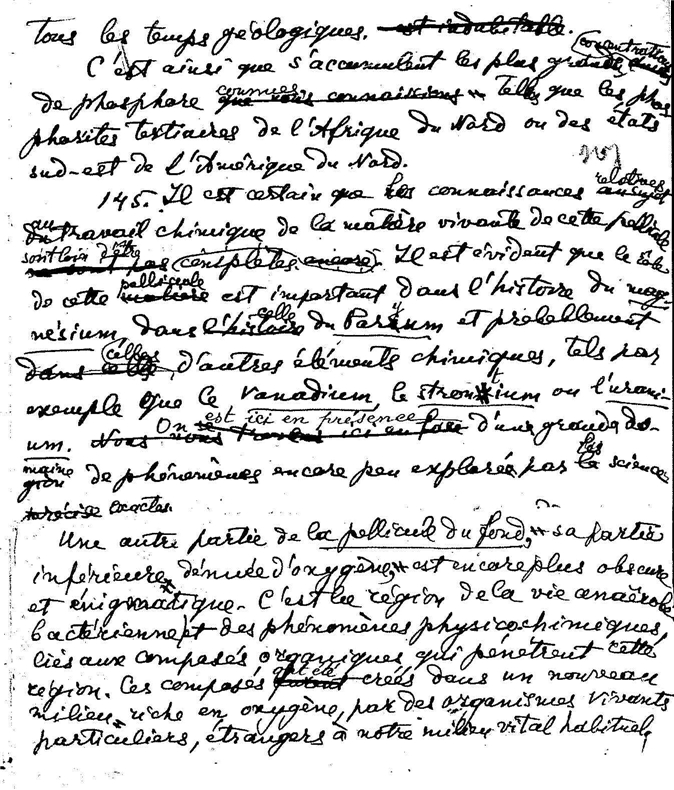 tous les temps géologiques. est indubitable.
C'est ainsi que s'accumulent les plus grandes concentrations
de phosphore connues que nous connaissions telles que les phos
phorites tertiaires de l'Afrique du Nord ou des états
sud-est de l'Amérique du Nord.
145. Il est certain que les connaissances relatives au sujet
au du travail chimique de la matière vivante de cette pellicule
sont loin d'être ne sont pas complètes encore. Il est évident que le rôle
de cette pellicule matière est important dans l'histoire du mag-
nésium, dans celle l'histoire du Baryum et probablement
celles dans celle d'autres éléments chimiques, tels par
exemple que le Vanadium, le strontium ou l'urani-
um. On est ici en présence Nous nous trouvons ici en face d'un grande do-
maine de phénomènes encore peu explorés par les sciences
précise exactes.
Une autre partie de la pellicule du fond, sa partie
inférieure, dénuée d'oxygène, est encore plus obscure
et énigmatique. C'est la région de la vie anaérobe
bactérienne et des phénomènes physicochimiques,
liés aux composés organiques qui pénètrent cette
région. Ces composés ont été furent créés dans un nouveau
milieu, riche en oxygène, par des organismes vivants
particuliers, étrangers à notre milieu vital habituel,